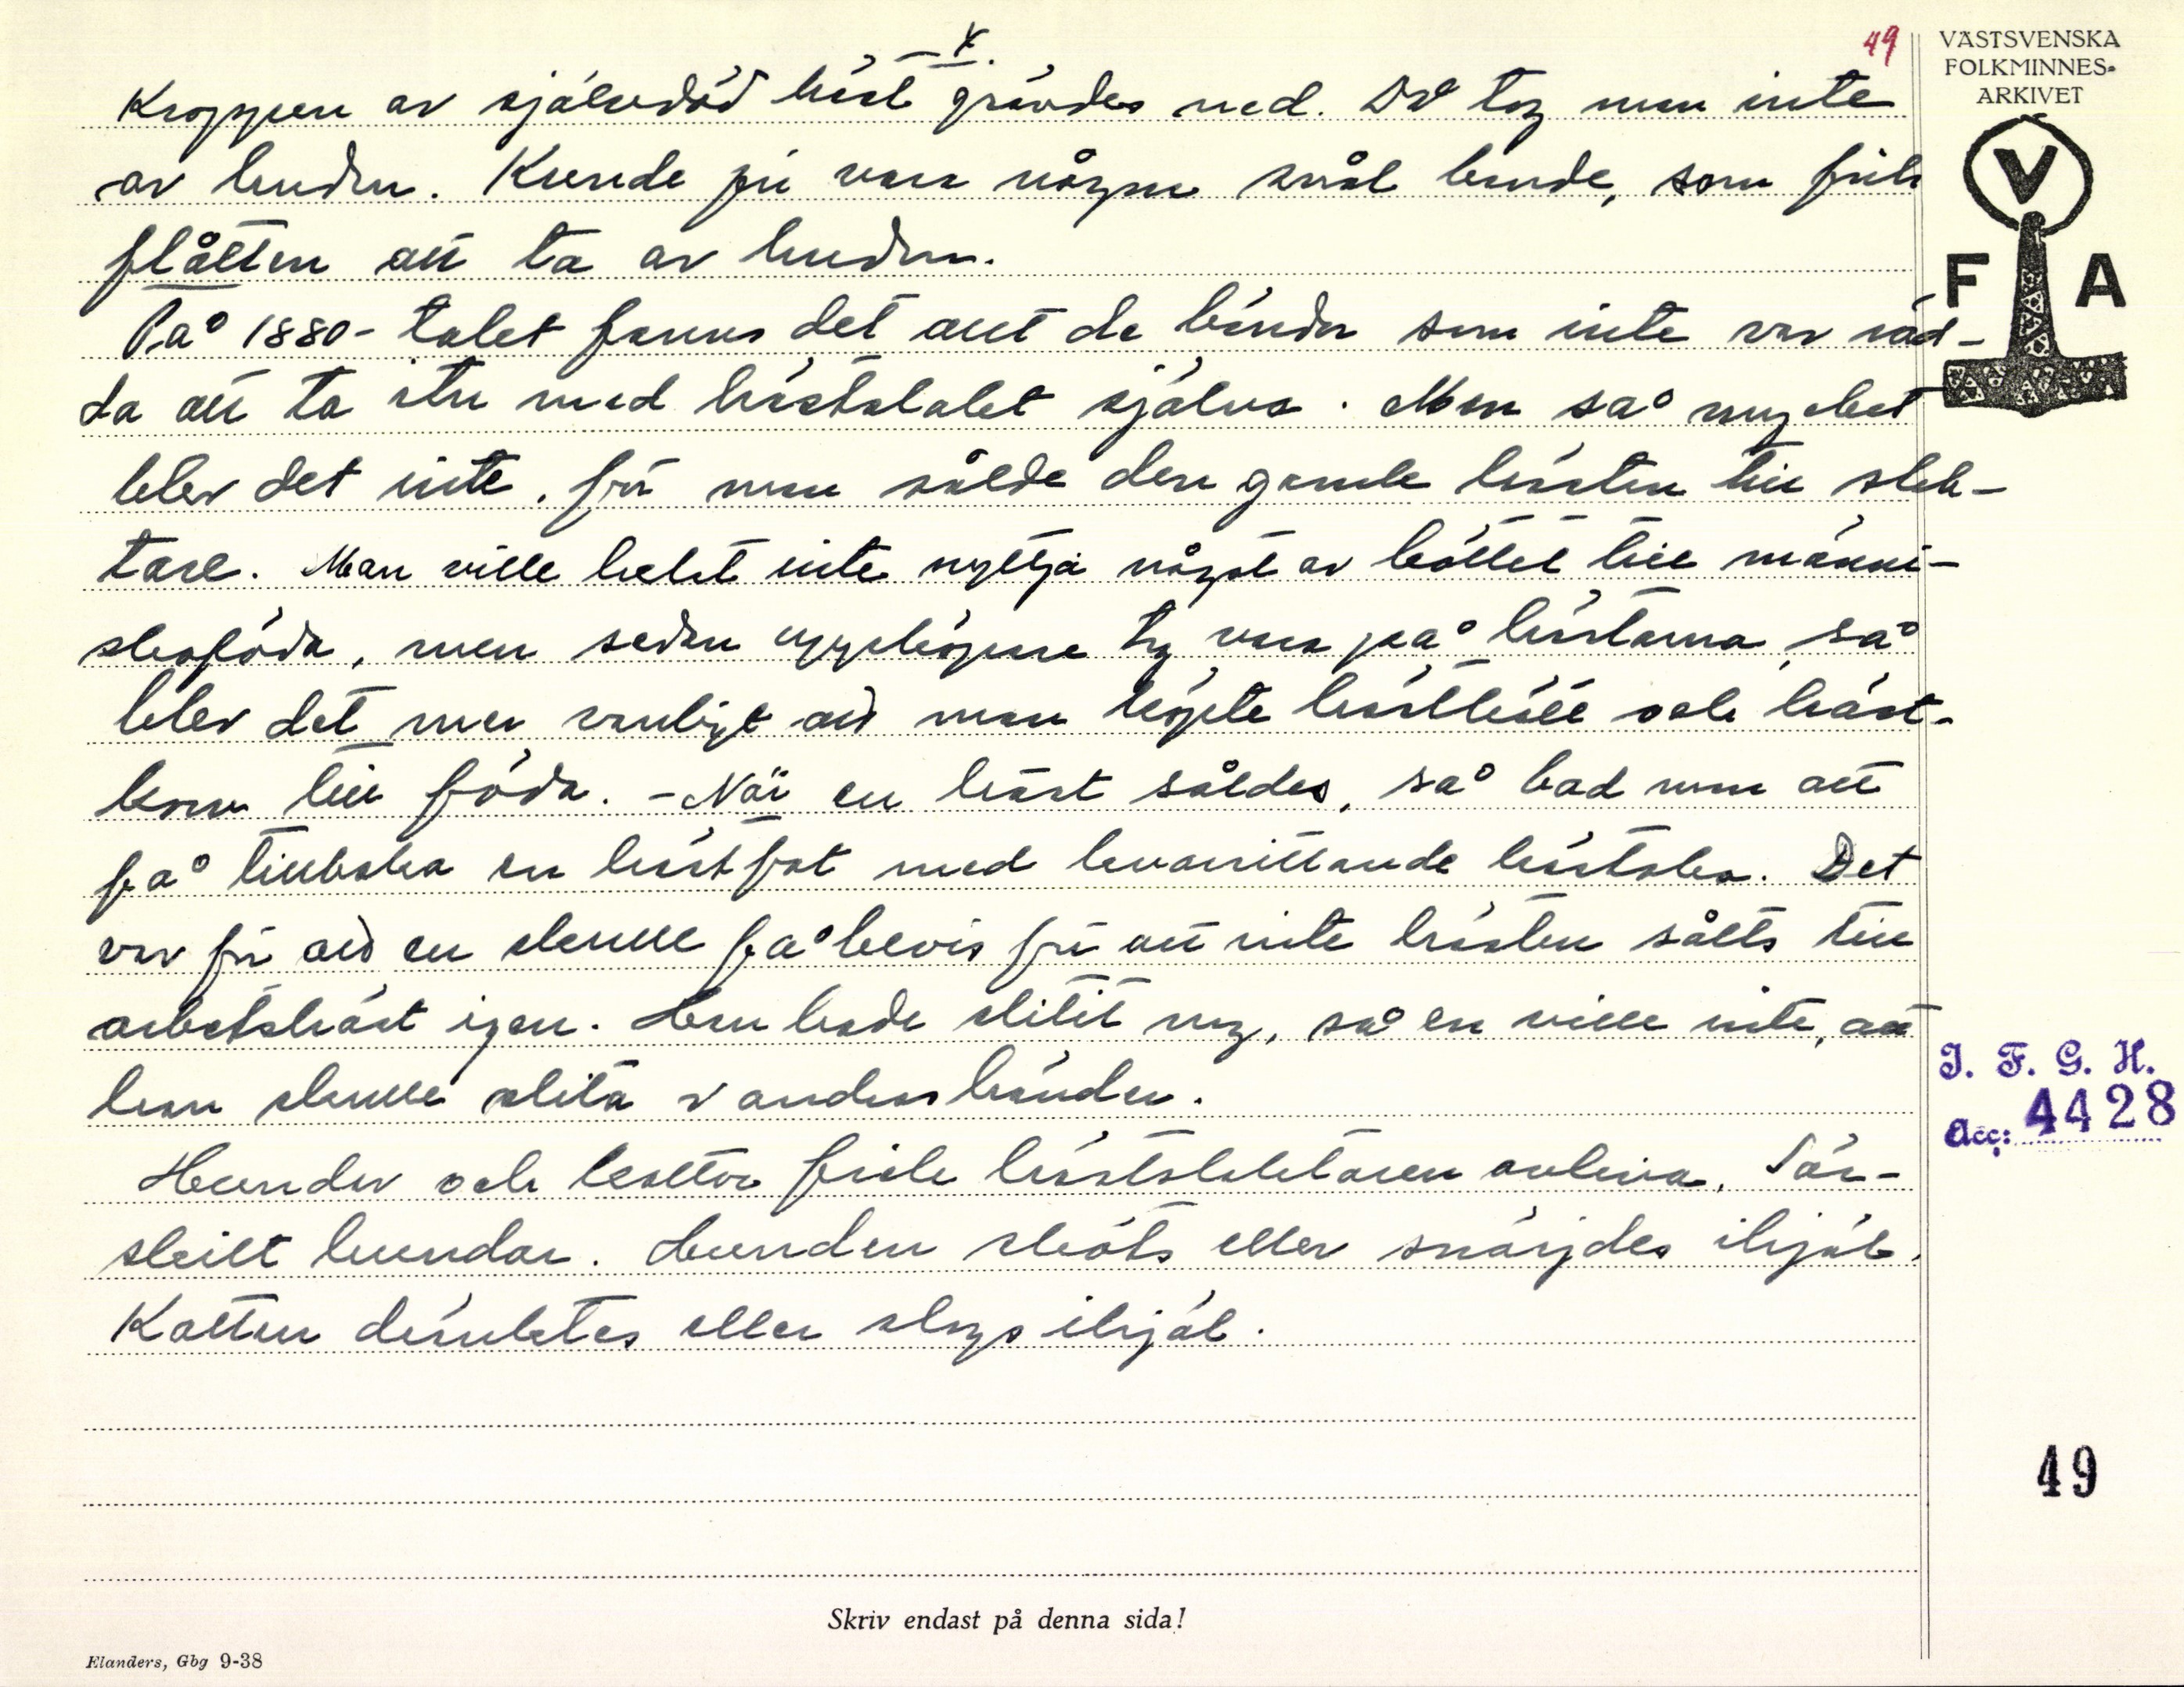 49
Kroppen av självdöd häst grävdes ned. Då tog man inte
av huden. Kunde ju vara någon snål bonde, som fick
flåtten att ta av huden.
På 1880-talet fanns det allt de bönder som inte var räd-
da att ta itu med hästslakt själva. Men så mycket
blev det inte, för man sålde den gamle hästen till slak-
tare. Man ville helst inte nyttja något av köttet till männi-
skoföda, men sedan uppköpare tog vara på hästarna, så
blev det mer vanligt att man köpte hästkött och häst-
korv till föda. - När en häst såldes, så bad man att
få tillbaka en hästfot med kvarsittande hästsko. Det
var för att en skulle få bevis för att inte hästen sålts till
arbetshäst igen. Han hade slitit nog, så en ville inte, att
han skulle slita i andras händer.
Hundar och kattor fick hästslaktaren avliva. Sär-
skilt hundar. Hunden sköts eller snärjdes ihjäl.
Katten dränktes eller slogs ihjäl.
VÄSTSVENSKA
FOLKMINNES-
ARKIVET
V
F A
I. F. G. H.
Acc: 4428
49
Skriv endast på denna sida!
Elanders, Gbg 9-38